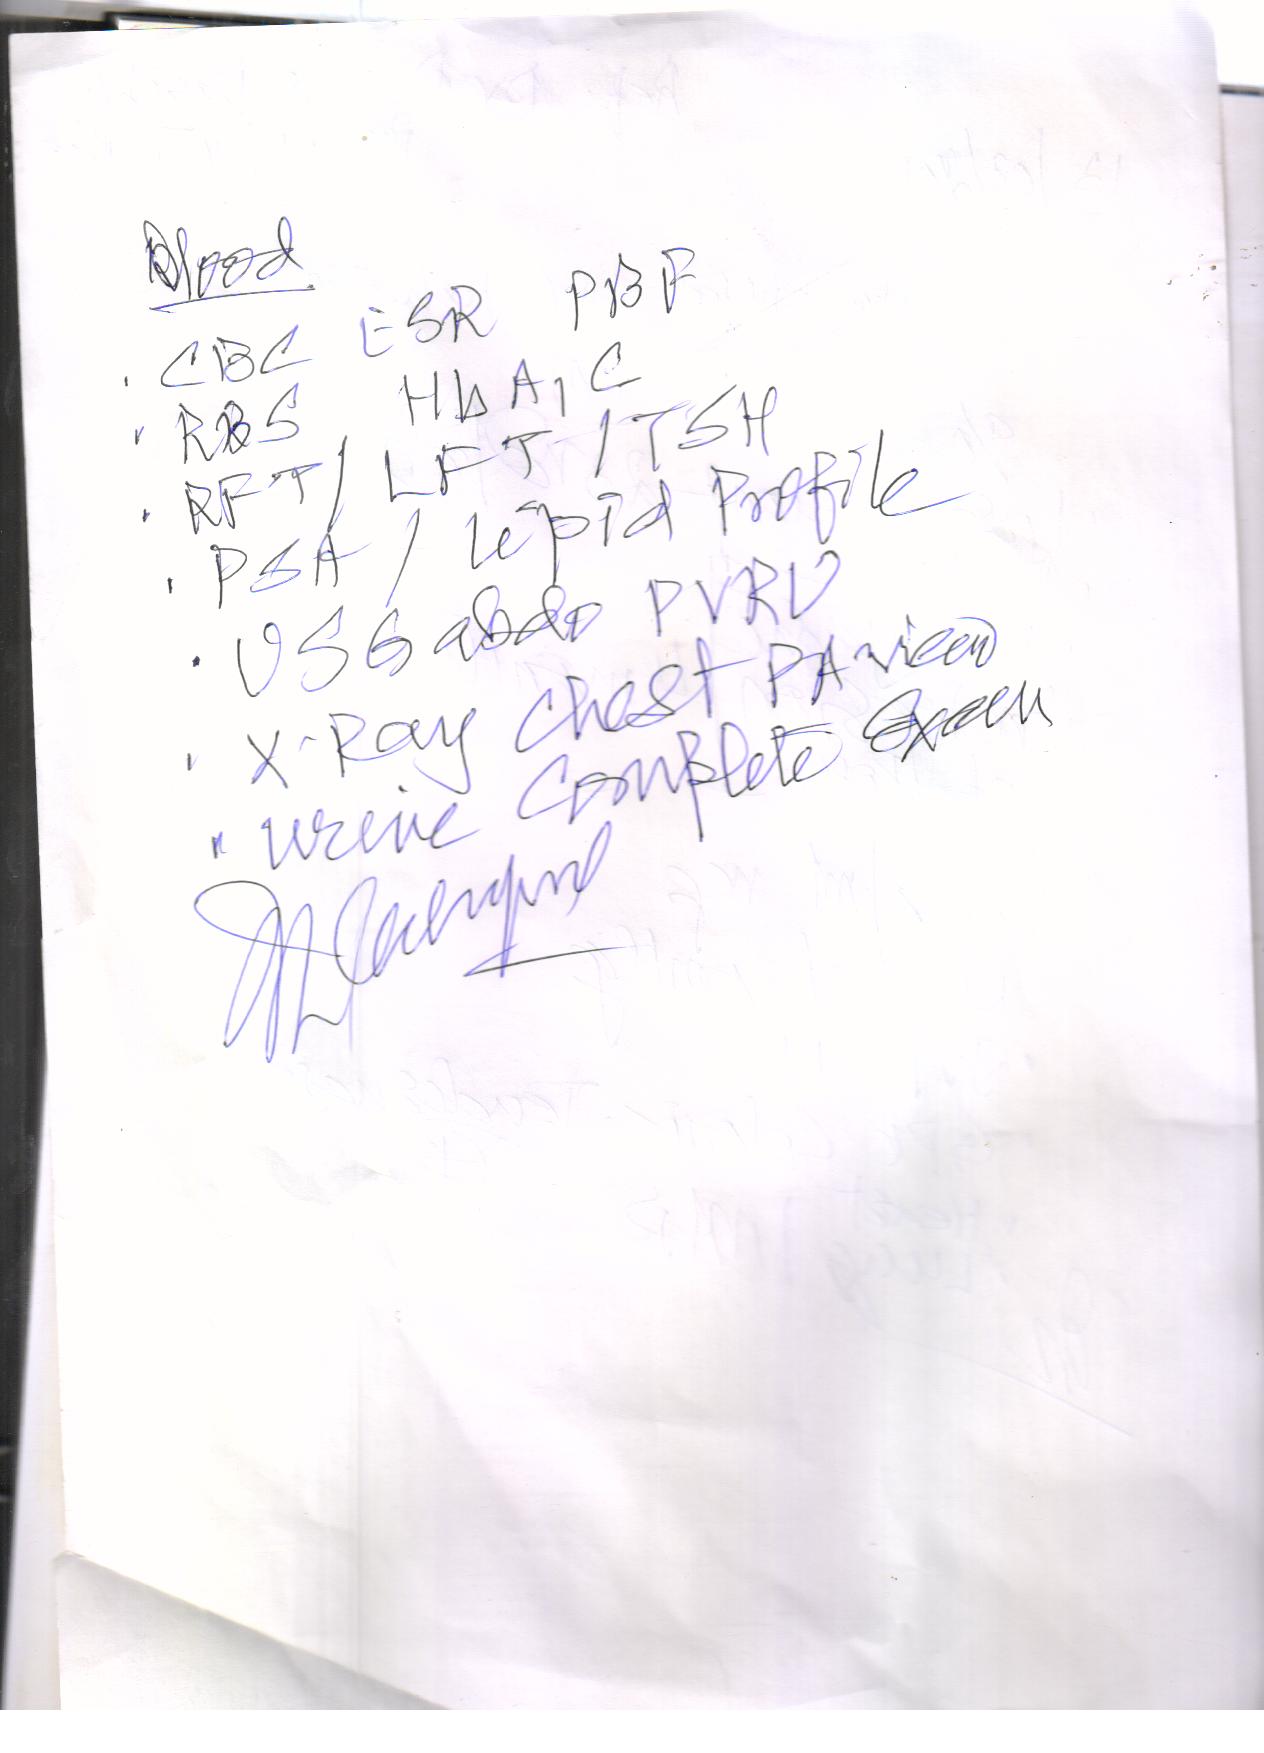 Blood
. CBC ESR PBF
. RBS HbA1C
. RFT / LFT / TSH
. PSA / Lipid Profile
. USG abdo PVRU
. X-Ray Chest PA view
. Urine Complete Exam